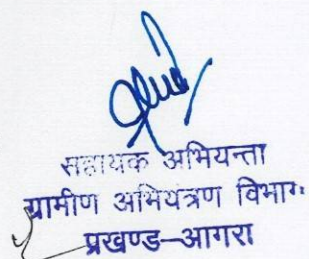 सहायक अभियन्ता
ग्रामीण अभियंत्रण विभाग
प्रखण्ड-आगरा